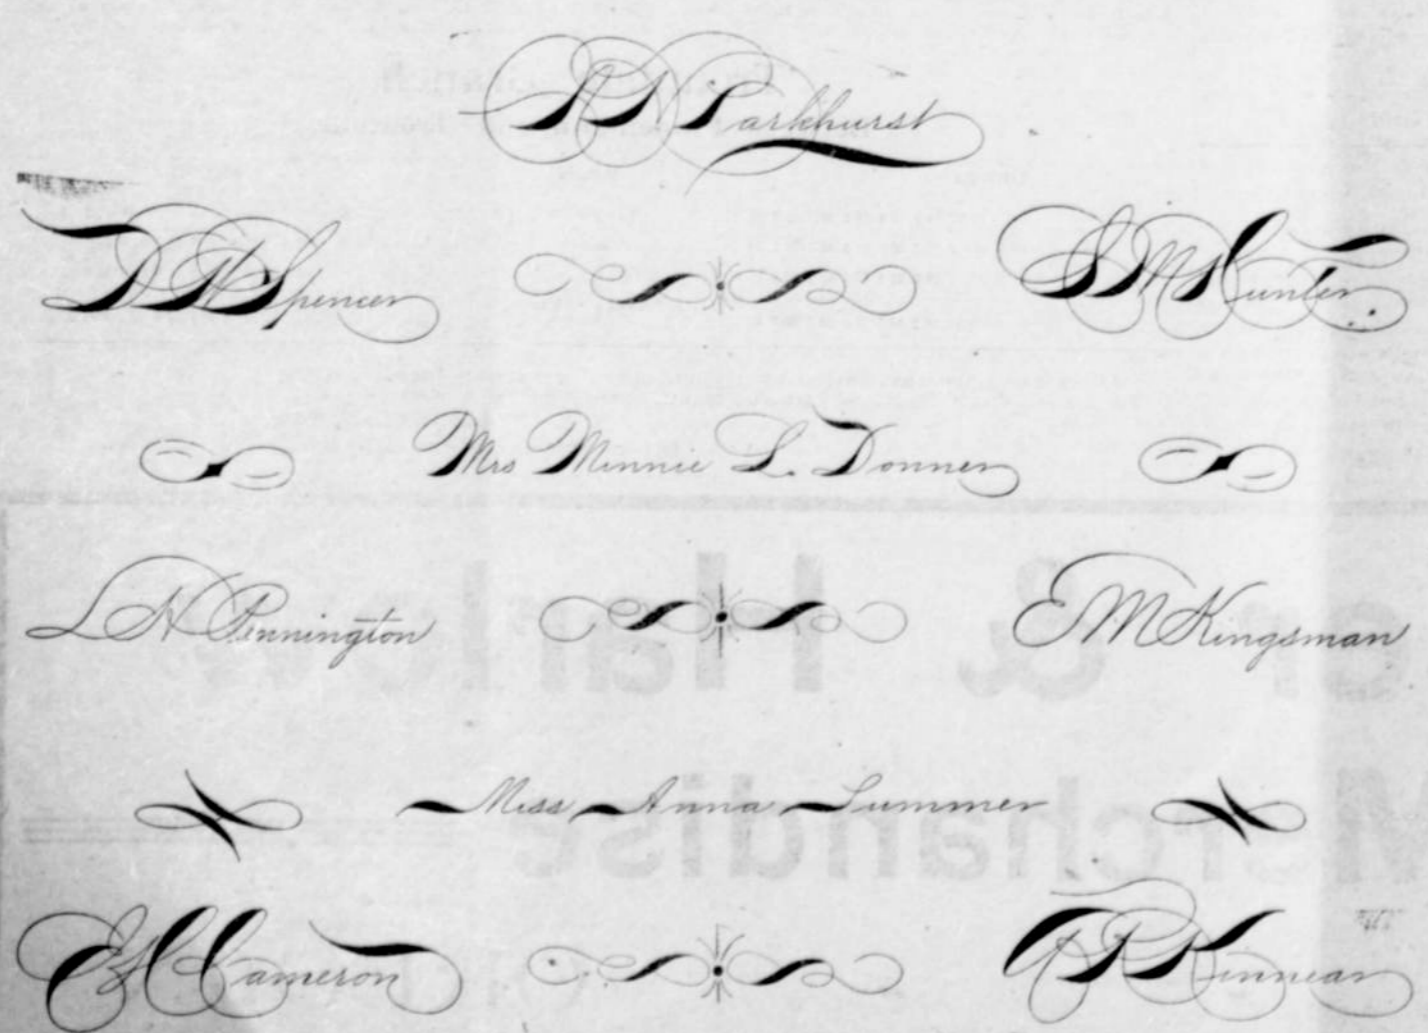 Parkhurst
D H Spencer S M Hunter
Mrs Minnie L. Donner
L H Pennington E M Kingsman
Miss Anna Summer
Cameron A P Kinnear